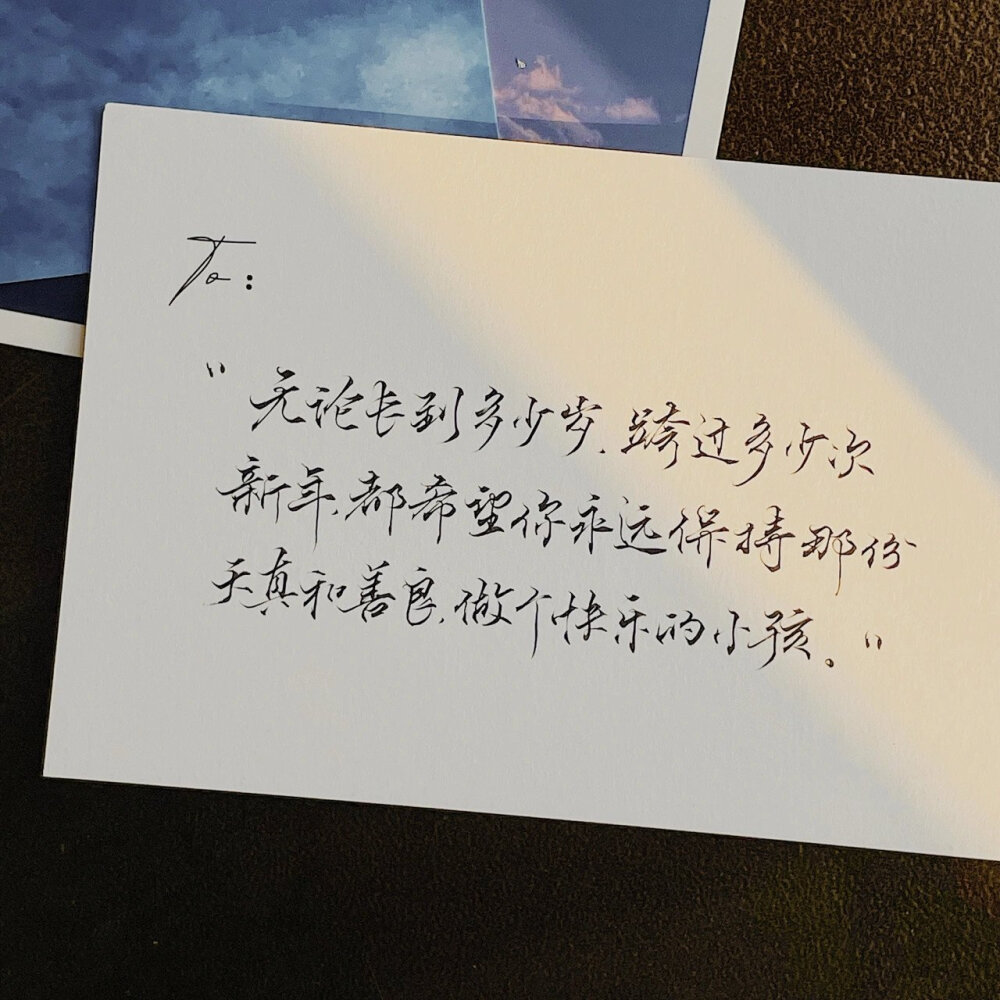 To:
"无论长到多少岁,跨过多少次
新年,都希望你永远保持那份
天真和善良,做个快乐的小孩。"